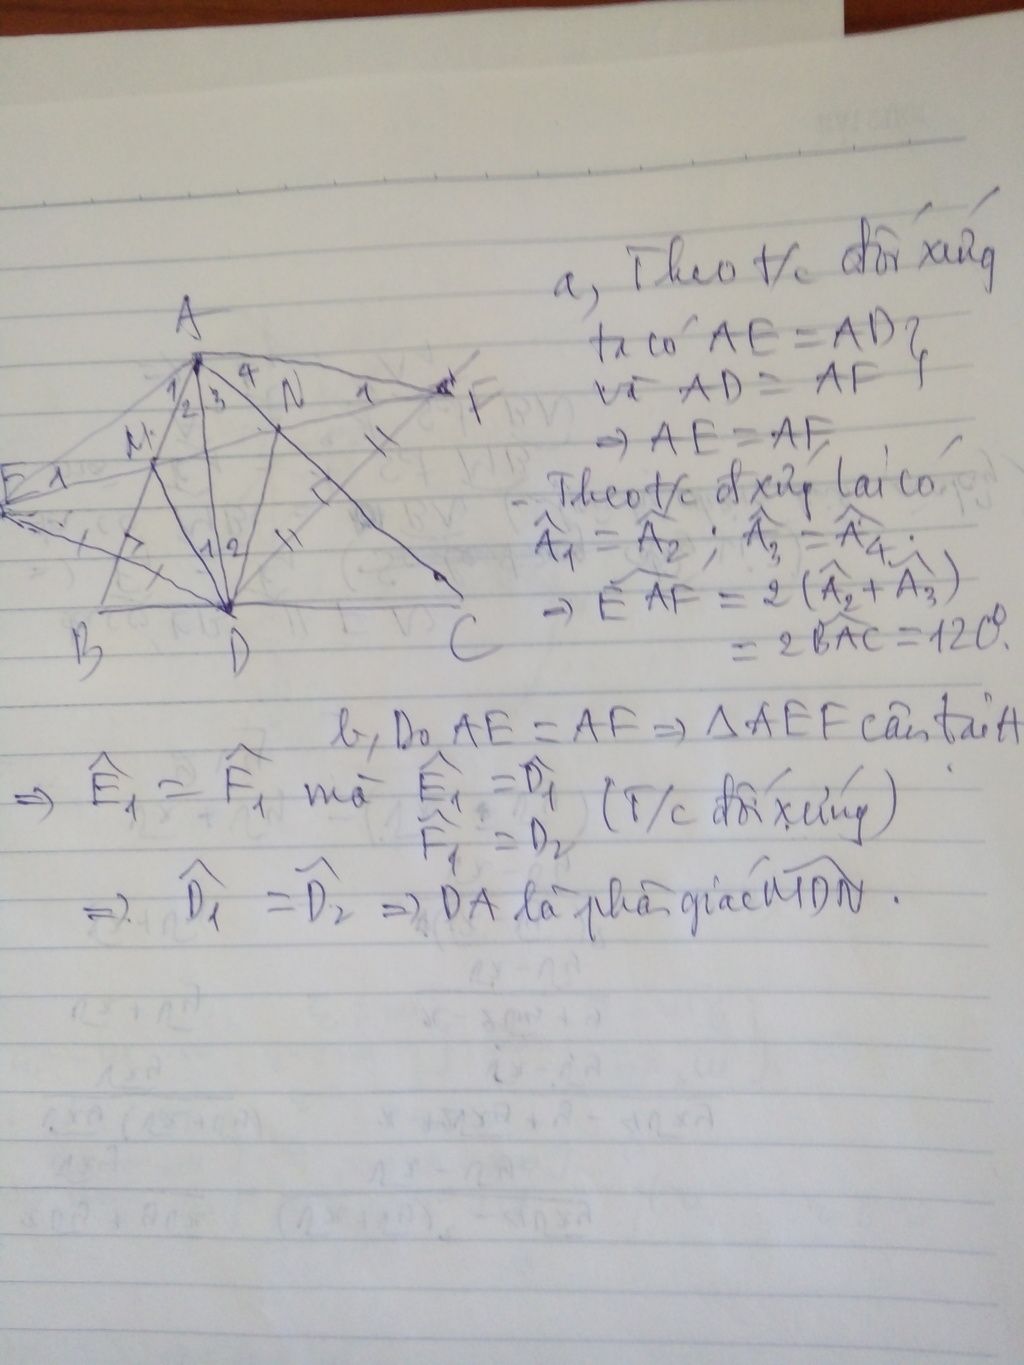 A
1 2 3 4
N
1
F
M
E 1
1 2
B D C
a, Theo t/c đối xứng
ta có AE = AD
và AD = AF
⇒ AE = AF
- Theo t/c đ xứng lại có
Â1 = Â2 ; Â3 = Â4.
⇒ EÂF = 2(Â2 + Â3)
= 2BÂC = 120°.
b, Do AE = AF ⇒ ΔAEF cân tại A
⇒ Ê1 = F̂1 mà Ê1 = D̂1
F̂1 = D2 (T/c đối xứng)
⇒ D̂1 = D̂2 ⇒ DA là phân giác MD̂N.